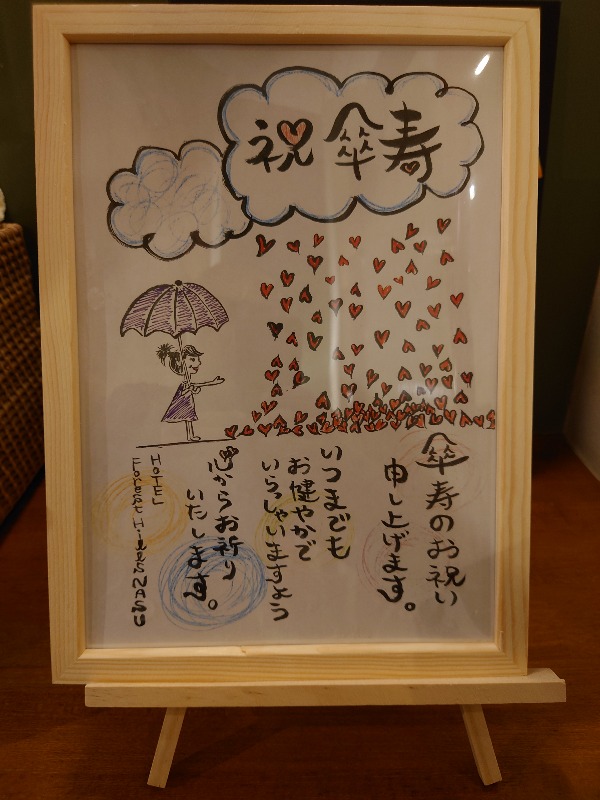 祝 傘寿
傘寿のお祝い
申し上げます。
いつまでも
お健やかで
いらっしゃいますよう
心からお祈り
いたします。
HOTEL
Forest Hills NASU